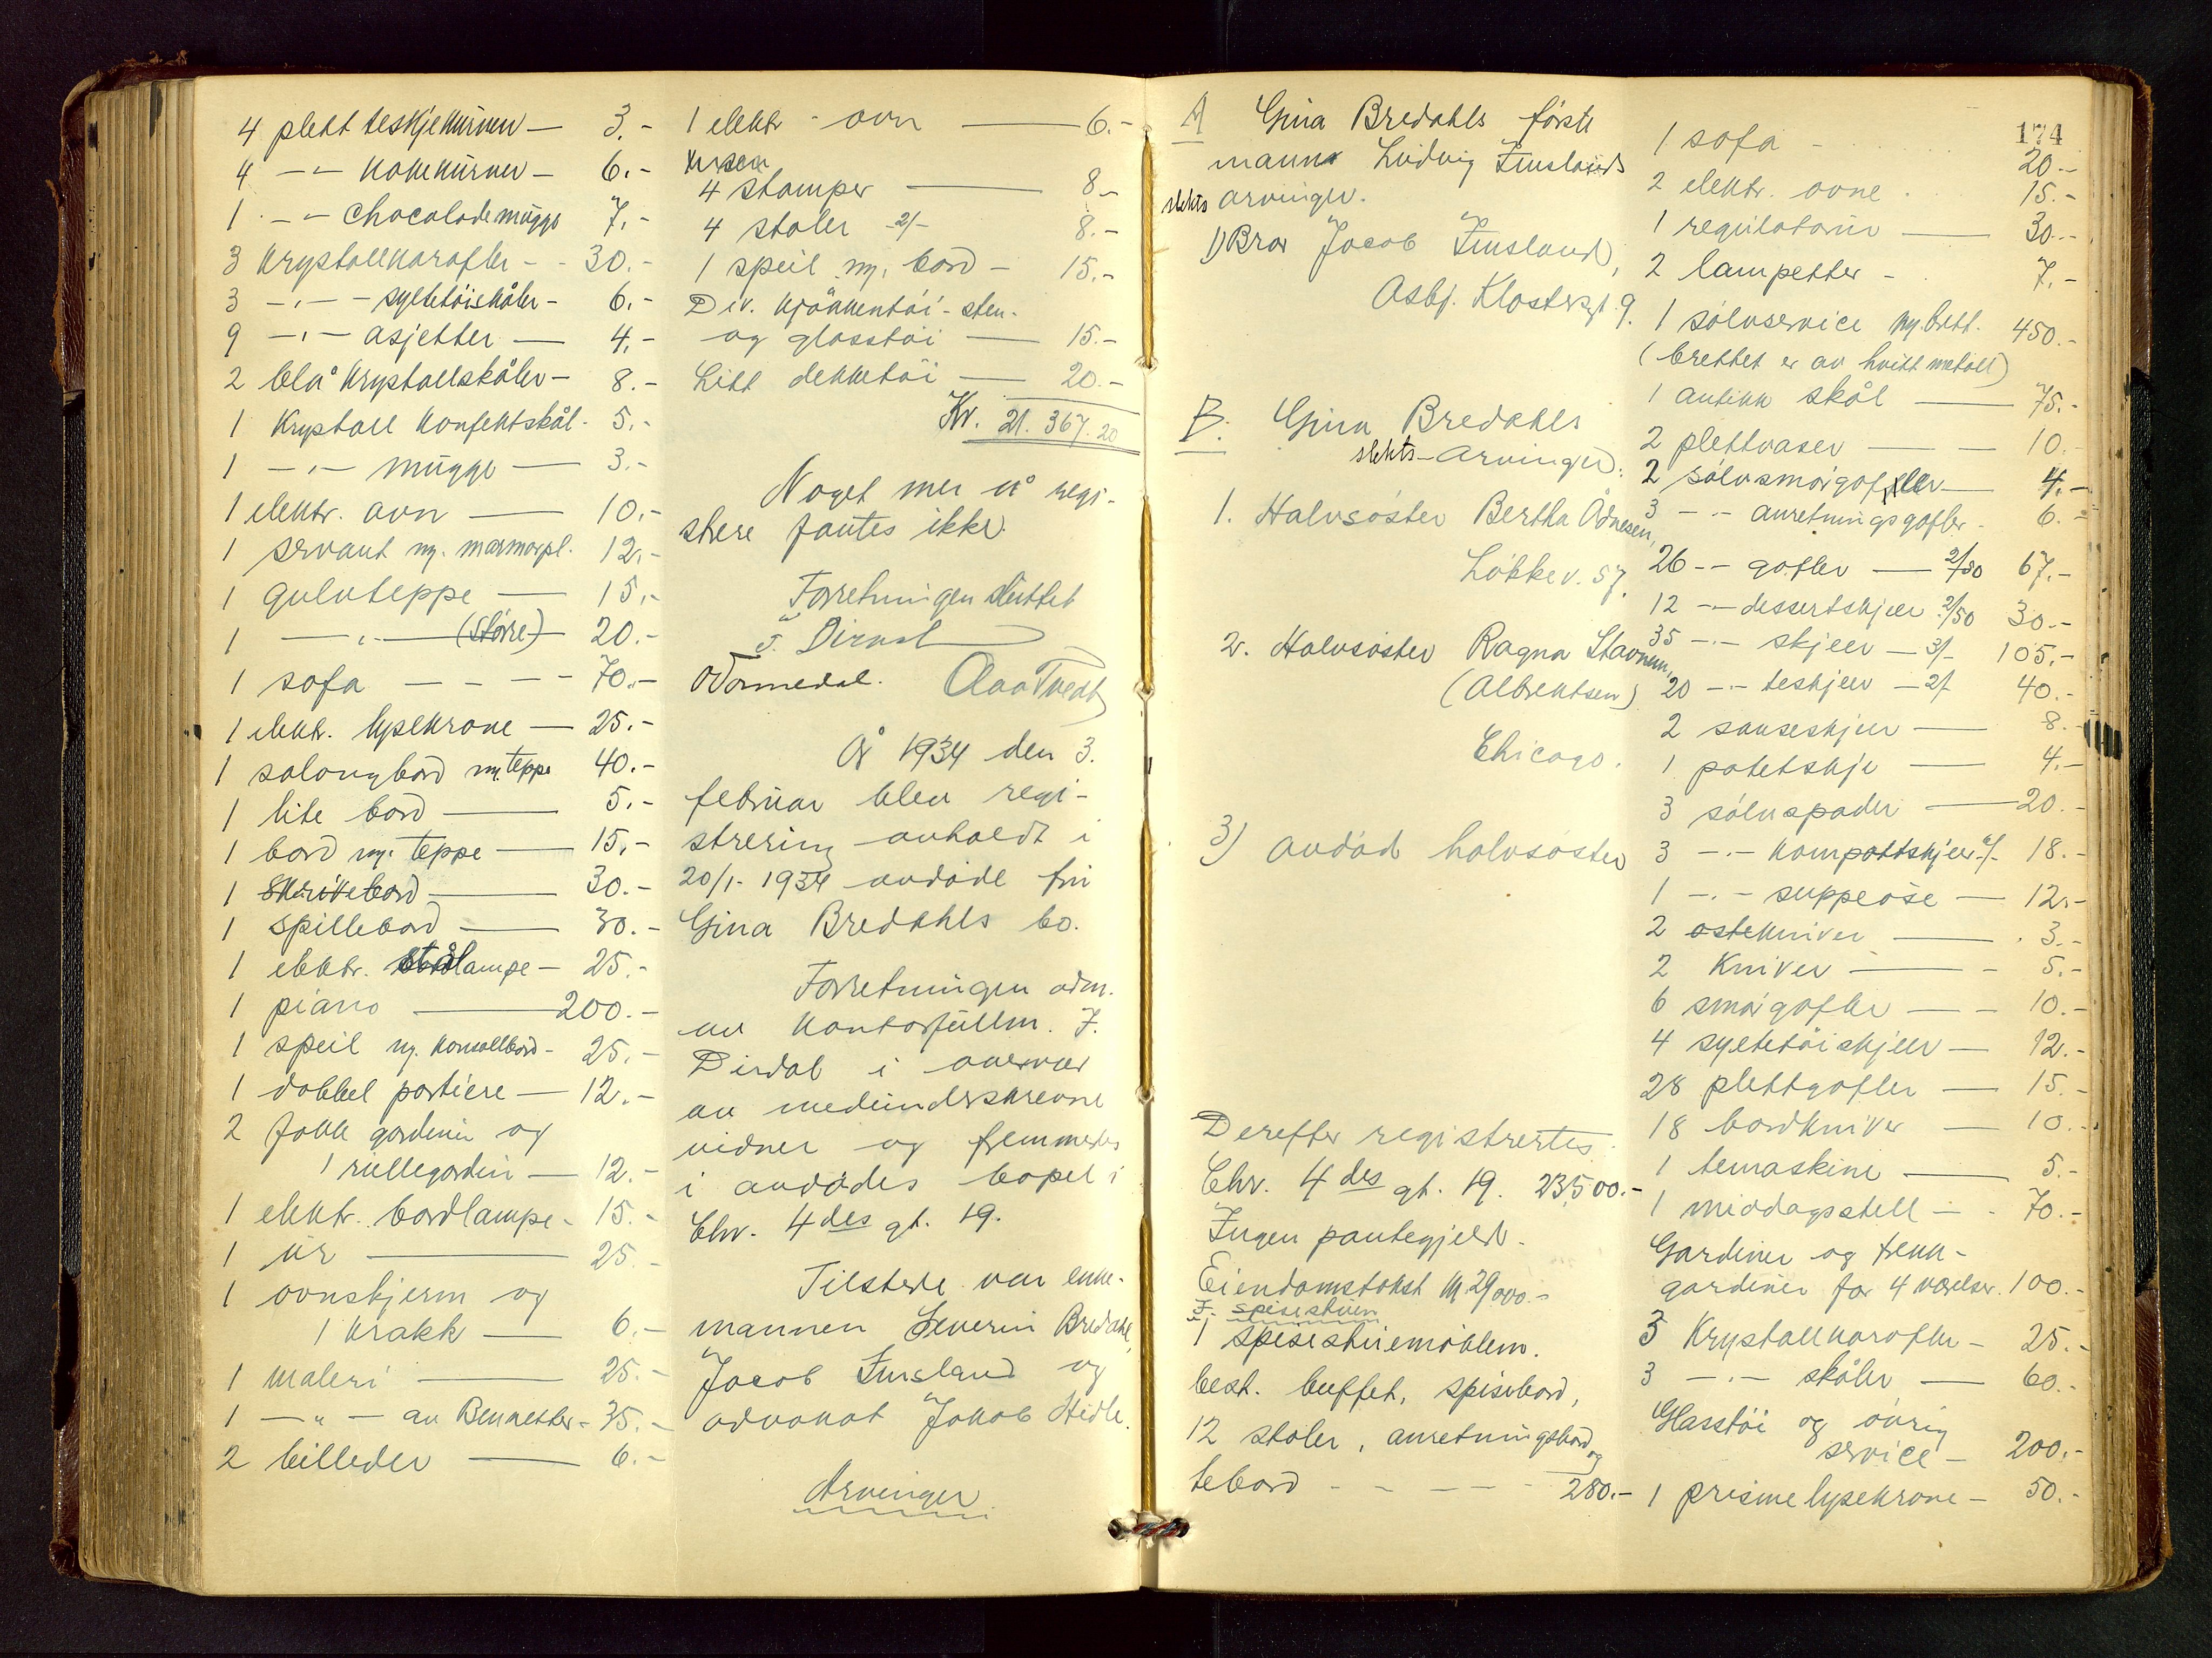 4 plett teskjekurver — 3.-
4 -"- kakekurver — 6.-
1 -"- chocolademugge 7.-
3 krystallkarafler - - 30.-
3 -"- syltetöiskåler - 6.-
9 -"- asjetter — 4.-
2 blå krystallskåler - 8.-
1 krystall konfektskål - 5.-
1 -"- mugge — 3.-
1 elektr. ovn — 10.-
1 servant m. marmorpl. 12.-
1 gulvteppe — 15.-
1 -"- (større) 20.-
1 sofa - - - - 70.-
1 elektr. lysekrone — 25.-
1 salongbord m. teppe 40.-
1 lite bord — 5.-
1 bord m. teppe — 15.-
1 skrivebord — 30.-
1 spillebord — 30.-
1 elektr. stålampe — 25.-
1 piano — 200.-
1 speil m. konsollbord - 25.-
1 dobbel portiere — 12.-
2 fakk gardiner og
1 rullegardin — 12.-
1 elektr. bordlampe - 15.-
1 ur — 25.-
1 ovnskjerm og
1 krakk — 6.-
1 maleri — 25.-
1 -"- av Bennetter - 35.-
2 billeder — 6.-
1 elektr - ovn — 6.-
4 stamper — 8.-
4 stoler 2/- 8.-
1 speil m. bord - 15.-
Div. kjøkkentöi - sten-
og glasstöi — 15.-
Litt dekketöi — 20.-
Kr. 21.367.20
Noget mer å regi-
strere fantes ikke.
Forretningen sluttet
J. Dirdal
Aao Tvedt
År 1934 den 3.
februar blev regi-
strering avholdt i
20/1- 1934 avdöde fru
Gina Bredahls bo.
Forretningen adm.
av kontorfullm. J.
Dirdal i overvær
av medunderskrevne
vidner og fremmedes
i avdödes bopel i
Chr. 4des gt. 19.
Tilstede var enke-
mannen Severin Bredahl,
Jacob Imsland og
advokat Jakob Hidle.
Arvinger
174
A Gina Bredahls förste
manns Ludvig Imslands
slekts arvinger.
1) Bror Jacob Imsland,
Asbj. Klostersgt. 9.
B. Gina Bredahls
slekts-Arvinger:
1. Halvsöster Bertha Ådnesen,
Lökkev. 57.
2. Halvsöster Ragna Stavnum,
(Albrektsen)
Chicago.
3) avdöd halvsöster
Derefter registrertes.
Chr. 4des gt. 19. 23500.-
Ingen pantegjeld.
Eiendomstakst kr 29000.-
I. spisestuen
1 spisestuemöblem.
best. buffet, spisebord,
12 stoler, anretningsbord og
tebord - - - - 280.-
1 sofa - 20.-
2 elektr. ovne . 15.-
1 regulatorur — 30.-
2 lampetter - 7.-
1 sölvservice m. brett. 450.-
(brettet er av hvitt metall)
1 antikk skål — 75.-
2 plettvaser — 10.-
2 sölvsmörgafler — 4.-
3 -"- anretningsgafler - 6.-
26 -"- gafler — 2/50 67.-
12 -"- dessertskjeer 2/50 30.-
35 -"- skjeer — 3/- 105.-
20 -"- teskjeer — 2/- 40.-
2 sauseskjeer — 8.-
1 potetskje — 4.-
3 sölvspader — 20.-
3 -"- kompottskjeer 6/- 18.-
1 -"- suppeöse — 12.-
2 ostekniver — 3.-
2 kniver — 5.-
6 smörgafler — 10.-
4 syltetöiskjeer — 12.-
28 plettgafler — 15.-
18 bordkniver — 10.-
1 temaskine — 5.-
1 middagsstell — 70.-
Gardiner og trekk-
gardiner for 4 værelser. 100.-
3 Krystallkarafler - 25.-
3 -"- skåler — 60.-
Glasstöi og övrig
service — 200.-
1 prisme lysekrone — 50.-